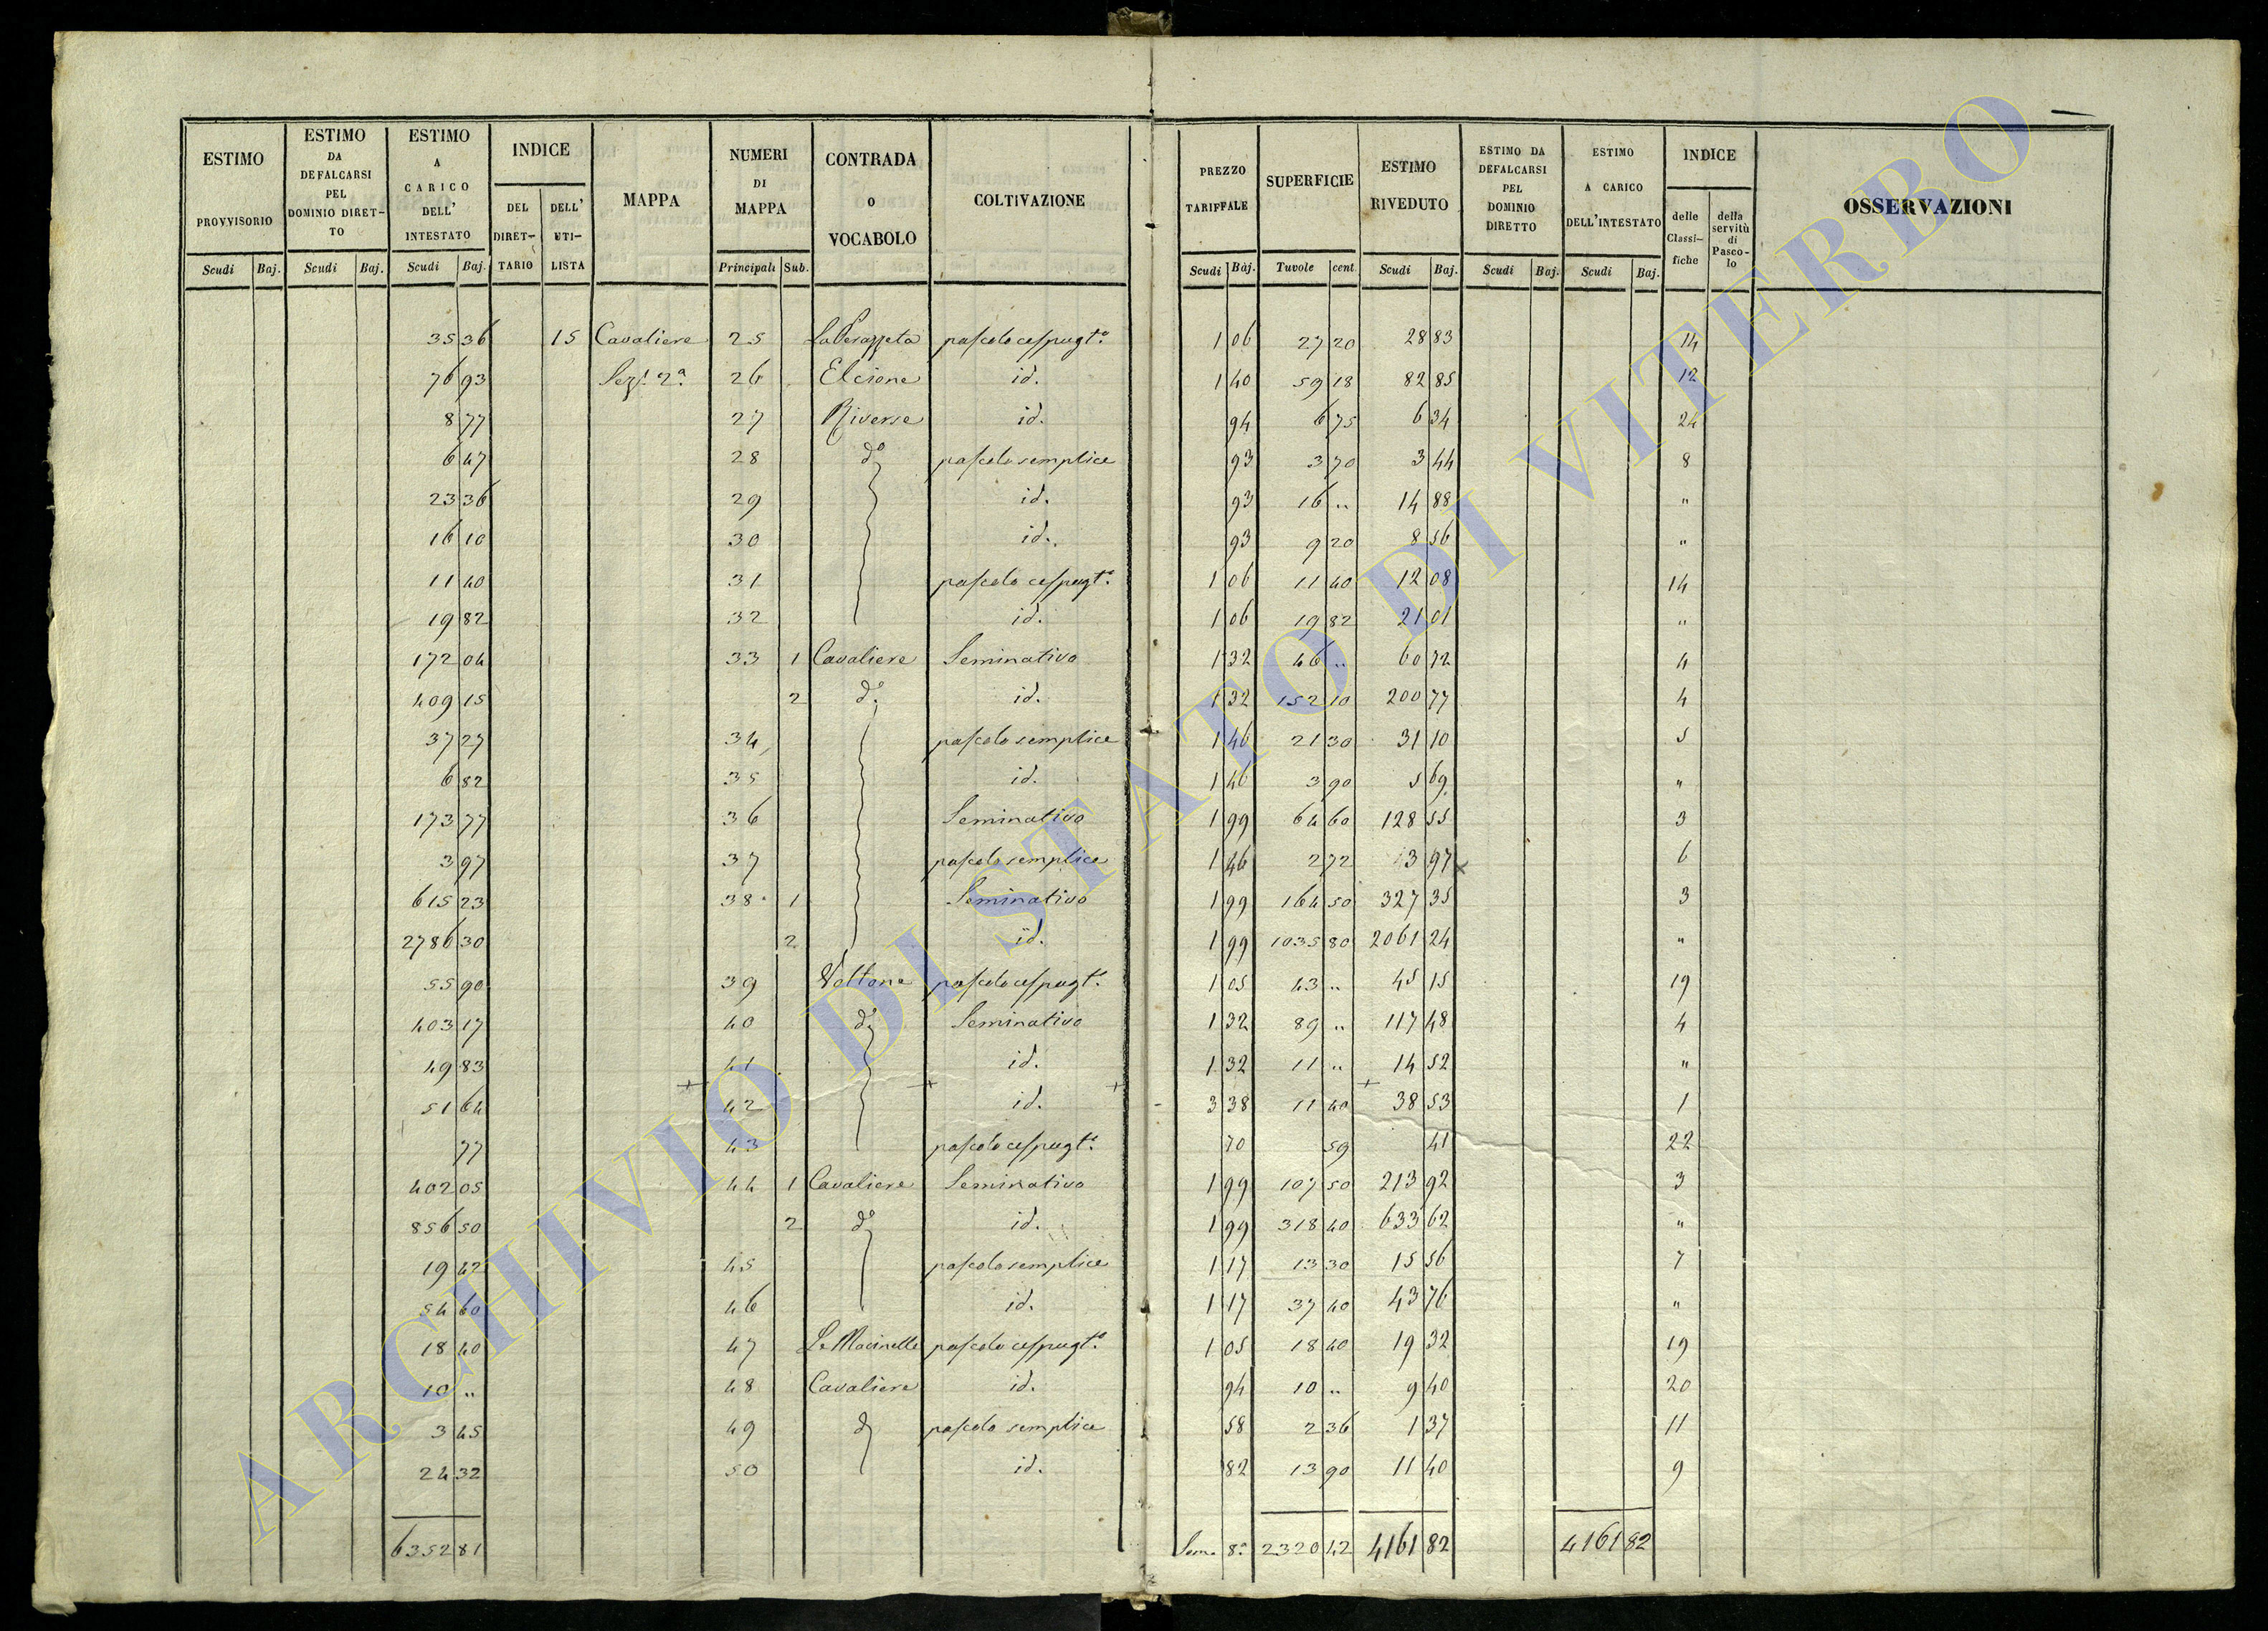 ESTIMO PROVVISORIO | ESTIMO DA DEFALCARSI PEL DOMINIO DIRET-TO | ESTIMO A CARICO DELL' INTESTATO | INDICE | MAPPA | NUMERI DI MAPPA | CONTRADA o VOCABOLO | COLTIVAZIONE | PREZZO TARIFFALE | SUPERFICIE | ESTIMO RIVEDUTO | ESTIMO DA DEFALCARSI PEL DOMINIO DIRETTO | ESTIMO A CARICO DELL'INTESTATO | INDICE | OSSERVAZIONI
DEL DIRET-TARIO | DELL' UTI-LISTA | delle Classi-fiche | della servitù di Pasco-lo
Scudi | Baj. | Scudi | Baj. | Scudi | Baj. | Principali | Sub. | Scudi | Baj. | Tavole | cent. | Scudi | Baj. | Scudi | Baj. | Scudi | Baj.
35 36 | 15 | Cavaliere | 25 | pascolo cespugt.o | 1 06 | 27 20 | 28 83 | 14
76 93 | Sez. 2a. | 26 | Elcione | id. | 1 40 | 59 18 | 82 85 | 12
8 77 | 27 | Riverse | id. | 94 | 6 75 | 6 34 | 24
6 47 | 28 | do | pascolo semplice | 93 | 3 70 | 3 44 | 8
23 36 | 29 | id. | 93 | 16 .. | 14 88 | "
16 10 | 30 | id. | 93 | 9 20 | 8 56 | "
11 40 | 31 | pascolo cespugt.o | 1 06 | 11 40 | 12 08 | 14
19 82 | 32 | id. | 1 06 | 19 82 | 21 01 | "
172 04 | 33 | 1 | Cavaliere | Seminativo | 1 32 | 46 .. | 60 72 | 4
409 15 | 2 | do. | id. | 1 32 | 152 10 | 200 77 | 4
37 27 | 34 | pascolo semplice | 1 46 | 21 30 | 31 10 | 5
6 82 | 35 | id. | 1 46 | 3 90 | 5 69 | "
173 77 | 36 | Seminativo | 1 99 | 64 60 | 128 55 | 3
3 97 | 37 | pascolo semplice | 1 46 | 2 72 | 3 97 x | 6
615 23 | 38 | 1 | Seminativo | 1 99 | 164 50 | 327 35 | 3
2786 30 | 2 | id. | 1 99 | 1035 80 | 2061 24 | "
55 90 | 39 | Voltone | pascolo cespugt.o | 1 05 | 43 .. | 45 15 | 19
403 17 | 40 | do | Seminativo | 1 32 | 89 .. | 117 48 | 4
49 83 | 41 | id. | 1 32 | 11 .. | 14 52 | "
51 64 | + 42 | + id. + | 3 38 | 11 40 | + 38 53 | 1
77 | 43 | pascolo cespugt.o | 70 | 59 | 41 | 22
402 05 | 44 | 1 | Cavaliere | Seminativo | 1 99 | 107 50 | 213 92 | 3
856 50 | 2 | do | id. | 1 99 | 318 40 | 633 62 | "
19 42 | 45 | pascolo semplice | 1 17 | 13 30 | 15 56 | 7
54 60 | 46 | id. | 1 17 | 37 40 | 43 76 | "
18 40 | 47 | Le Macinelle | pascolo cespugt.o | 1 05 | 18 40 | 19 32 | 19
10 .. | 48 | Cavaliere | id. | 94 | 10 .. | 9 40 | 20
3 45 | 49 | d | pascolo semplice | 58 | 2 36 | 1 37 | 11
24 32 | 50 | id. | 82 | 13 90 | 11 40 | 9
6352 81 | Som. 8.a | 2320 42 | 4161 82 | 4161 82
ARCHIVIO DI STATO DI VITERBO